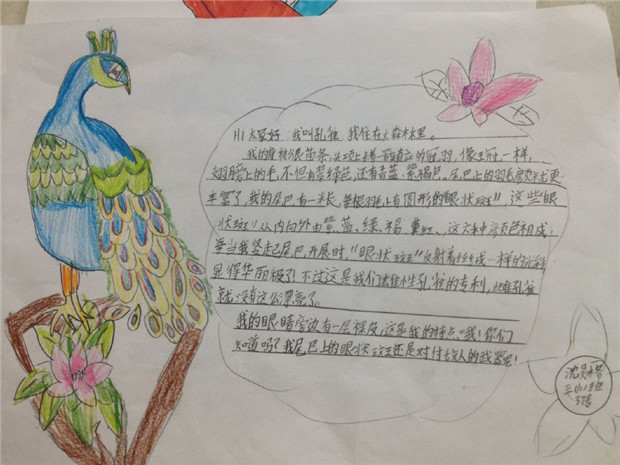 Hi 大家好：我叫孔雀 我住在大森林里。
我的身材很苗条，头顶上有一碰直立的冠羽，像王冠一样，
翅膀上的毛，不但有翠绿色，还有青蓝 紫褐色，尾巴上的羽毛
丰富了，我的尾巴有一米长，单根羽毛上有圆形的"眼状斑"，这些眼
状斑"从内向外由紫、蓝、绿、褐 黄红、这六种颜色组成；
每当我竖起尾巴，开屏时，"眼状斑"反射着丝丝一样的光彩
显得华丽极了！不过这是我们雄性孔雀的专利，雌孔雀
就没有这么漂亮了。
我的眼睛旁边有一层裸皮，这是我的特点。哦！你们
知道吗？我尾巴上的眼状斑还是对付敌人的武器呢！
三